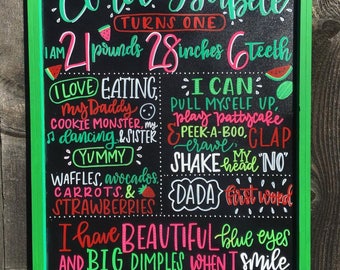 TURNS ONE
I AM 21 pounds 28 inches 6 TEETH
I LOVE EATING,
my Daddy,
COOKIE MONSTER, my
dancing, & SISTER
YUMMY
WAFFLES, avocados,
CARROTS, &
STRAWBERRIES
I CAN
PULL MYSELF UP,
play pattycake
& PEEK-A-BOO, CLAP
crawl
SHAKE MY head "NO"
DADA first word
I have BEAUTIFUL blue eyes
AND BIG DIMPLES WHEN I smile